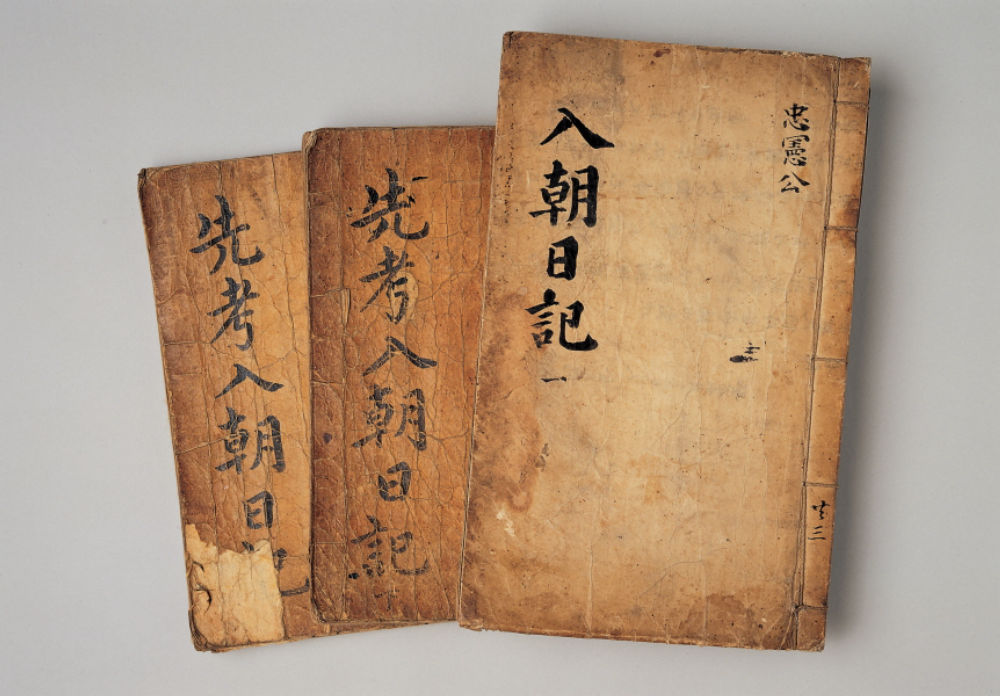 忠憲公
入朝日記
一
共三
先考入朝日記
先考入朝日記